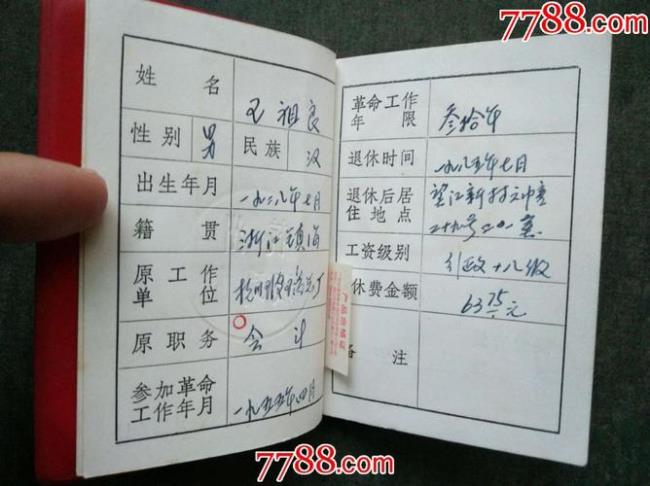 7788.com
姓名
王祖良
性别
男
民族
汉
出生年月
一九二八年七月
籍贯
浙江镇海
原工作
单位
杭州
原职务
会计
参加革命
工作年月
一九五五年四月
革命工作
年限
叁拾年
退休时间
一九八五年七月
退休后居
住地点
望江新村
工资级别
行政十八级
休费金额
63.75元
备注
7788.com